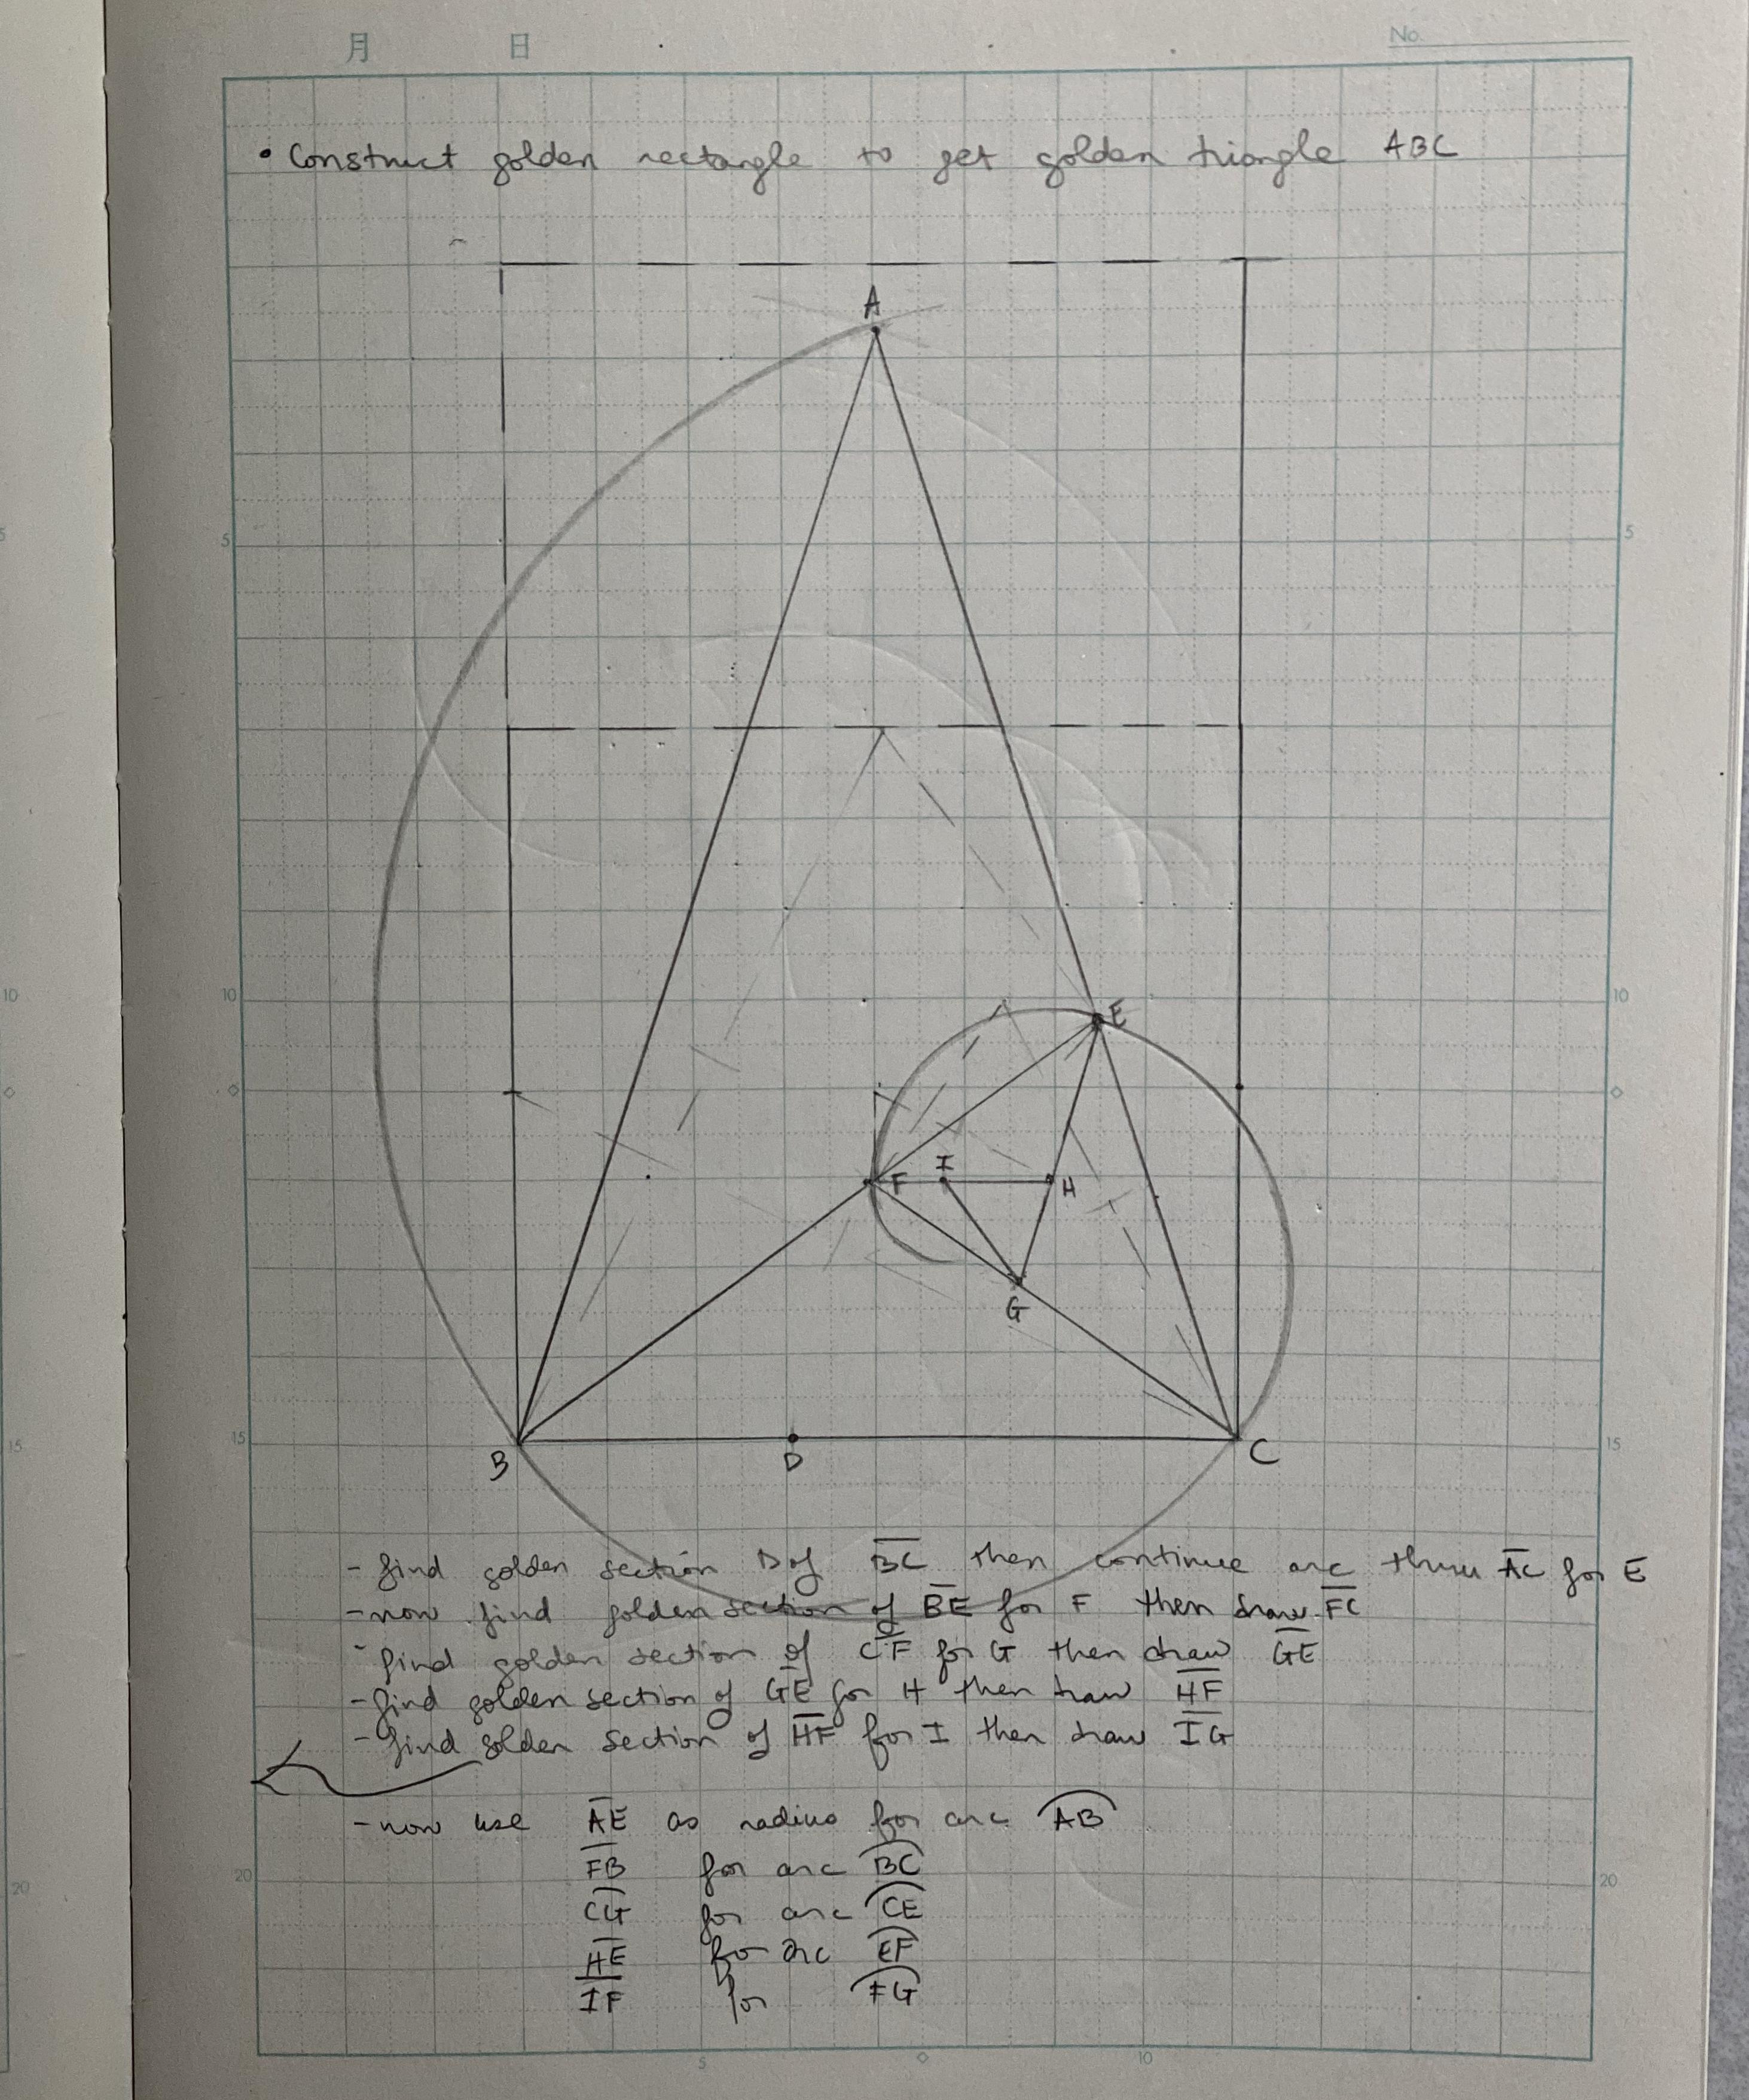 月 日 No.
• Construct golden rectangle to get golden triangle ABC
A
5 5
10 E 10
I
F H
G
15 15
B D C
- find golden section D of BC then continue arc thru AC for E
- now find golden section of BE for F then draw FC
- find golden section of CF for G then draw GE
- find golden section of GE for H then draw HF
- find golden section of HF for I then draw IG
- now use AE as radius for arc AB
FB for arc BC
20 20
CG for arc CE
HE for arc EF
IF for FG
5 10